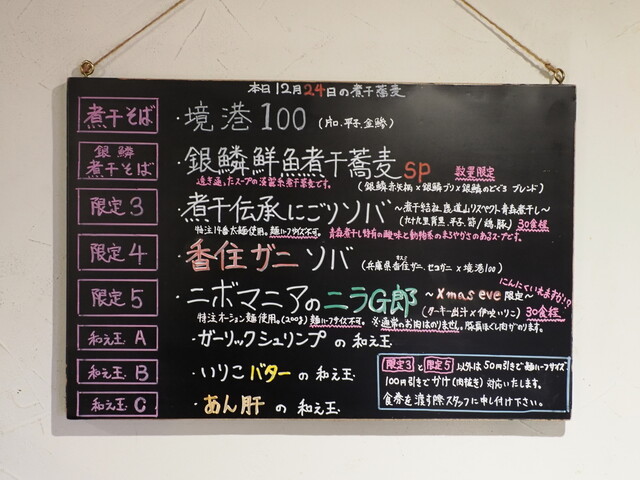 本日12月24日の煮干蕎麦
煮干そば ・境港100 (片口、平子、金鯵)
銀鱗煮干そば ・銀鱗鮮魚煮干蕎麦SP 数量限定
透き通ったスープの淡麗系煮干蕎麦です。 (銀鱗赤矢柄×銀鱗ブリ×銀鱗のどぐろ ブレンド)
限定3 ・煮干伝承にごりソバ 〜煮干結社 リスペクト青森煮干し〜
特注14番太麺使用。麺ハーフサイズ不可。 30食程
青森煮干し特有の酸味と動物系のまろやかさのあるスープです。
限定4 ・香住ガニソバ (兵庫県香住ガニ、セコガニ×境港100)
限定5 ・ニボマニアのニラG郎 〜Xmas eve限定〜 にんにくていれますか!?
(ターキー出汁×伊吹いりこ) 30食程
特注オーション麺使用。(200g)麺ハーフサイズ不可。 ※通常のお肉はのりません。豚ほぐし肉がのります。
和え玉 A ・ガーリックシュリンプの和え玉
和え玉 B ・いりこバターの和え玉
和え玉 C ・あん肝の和え玉
限定3と限定5以外は50円引きで麺ハーフサイズ
100円引きでかけ(肉抜き)対応いたします。
食券を渡す際スタッフに申し付け下さい。